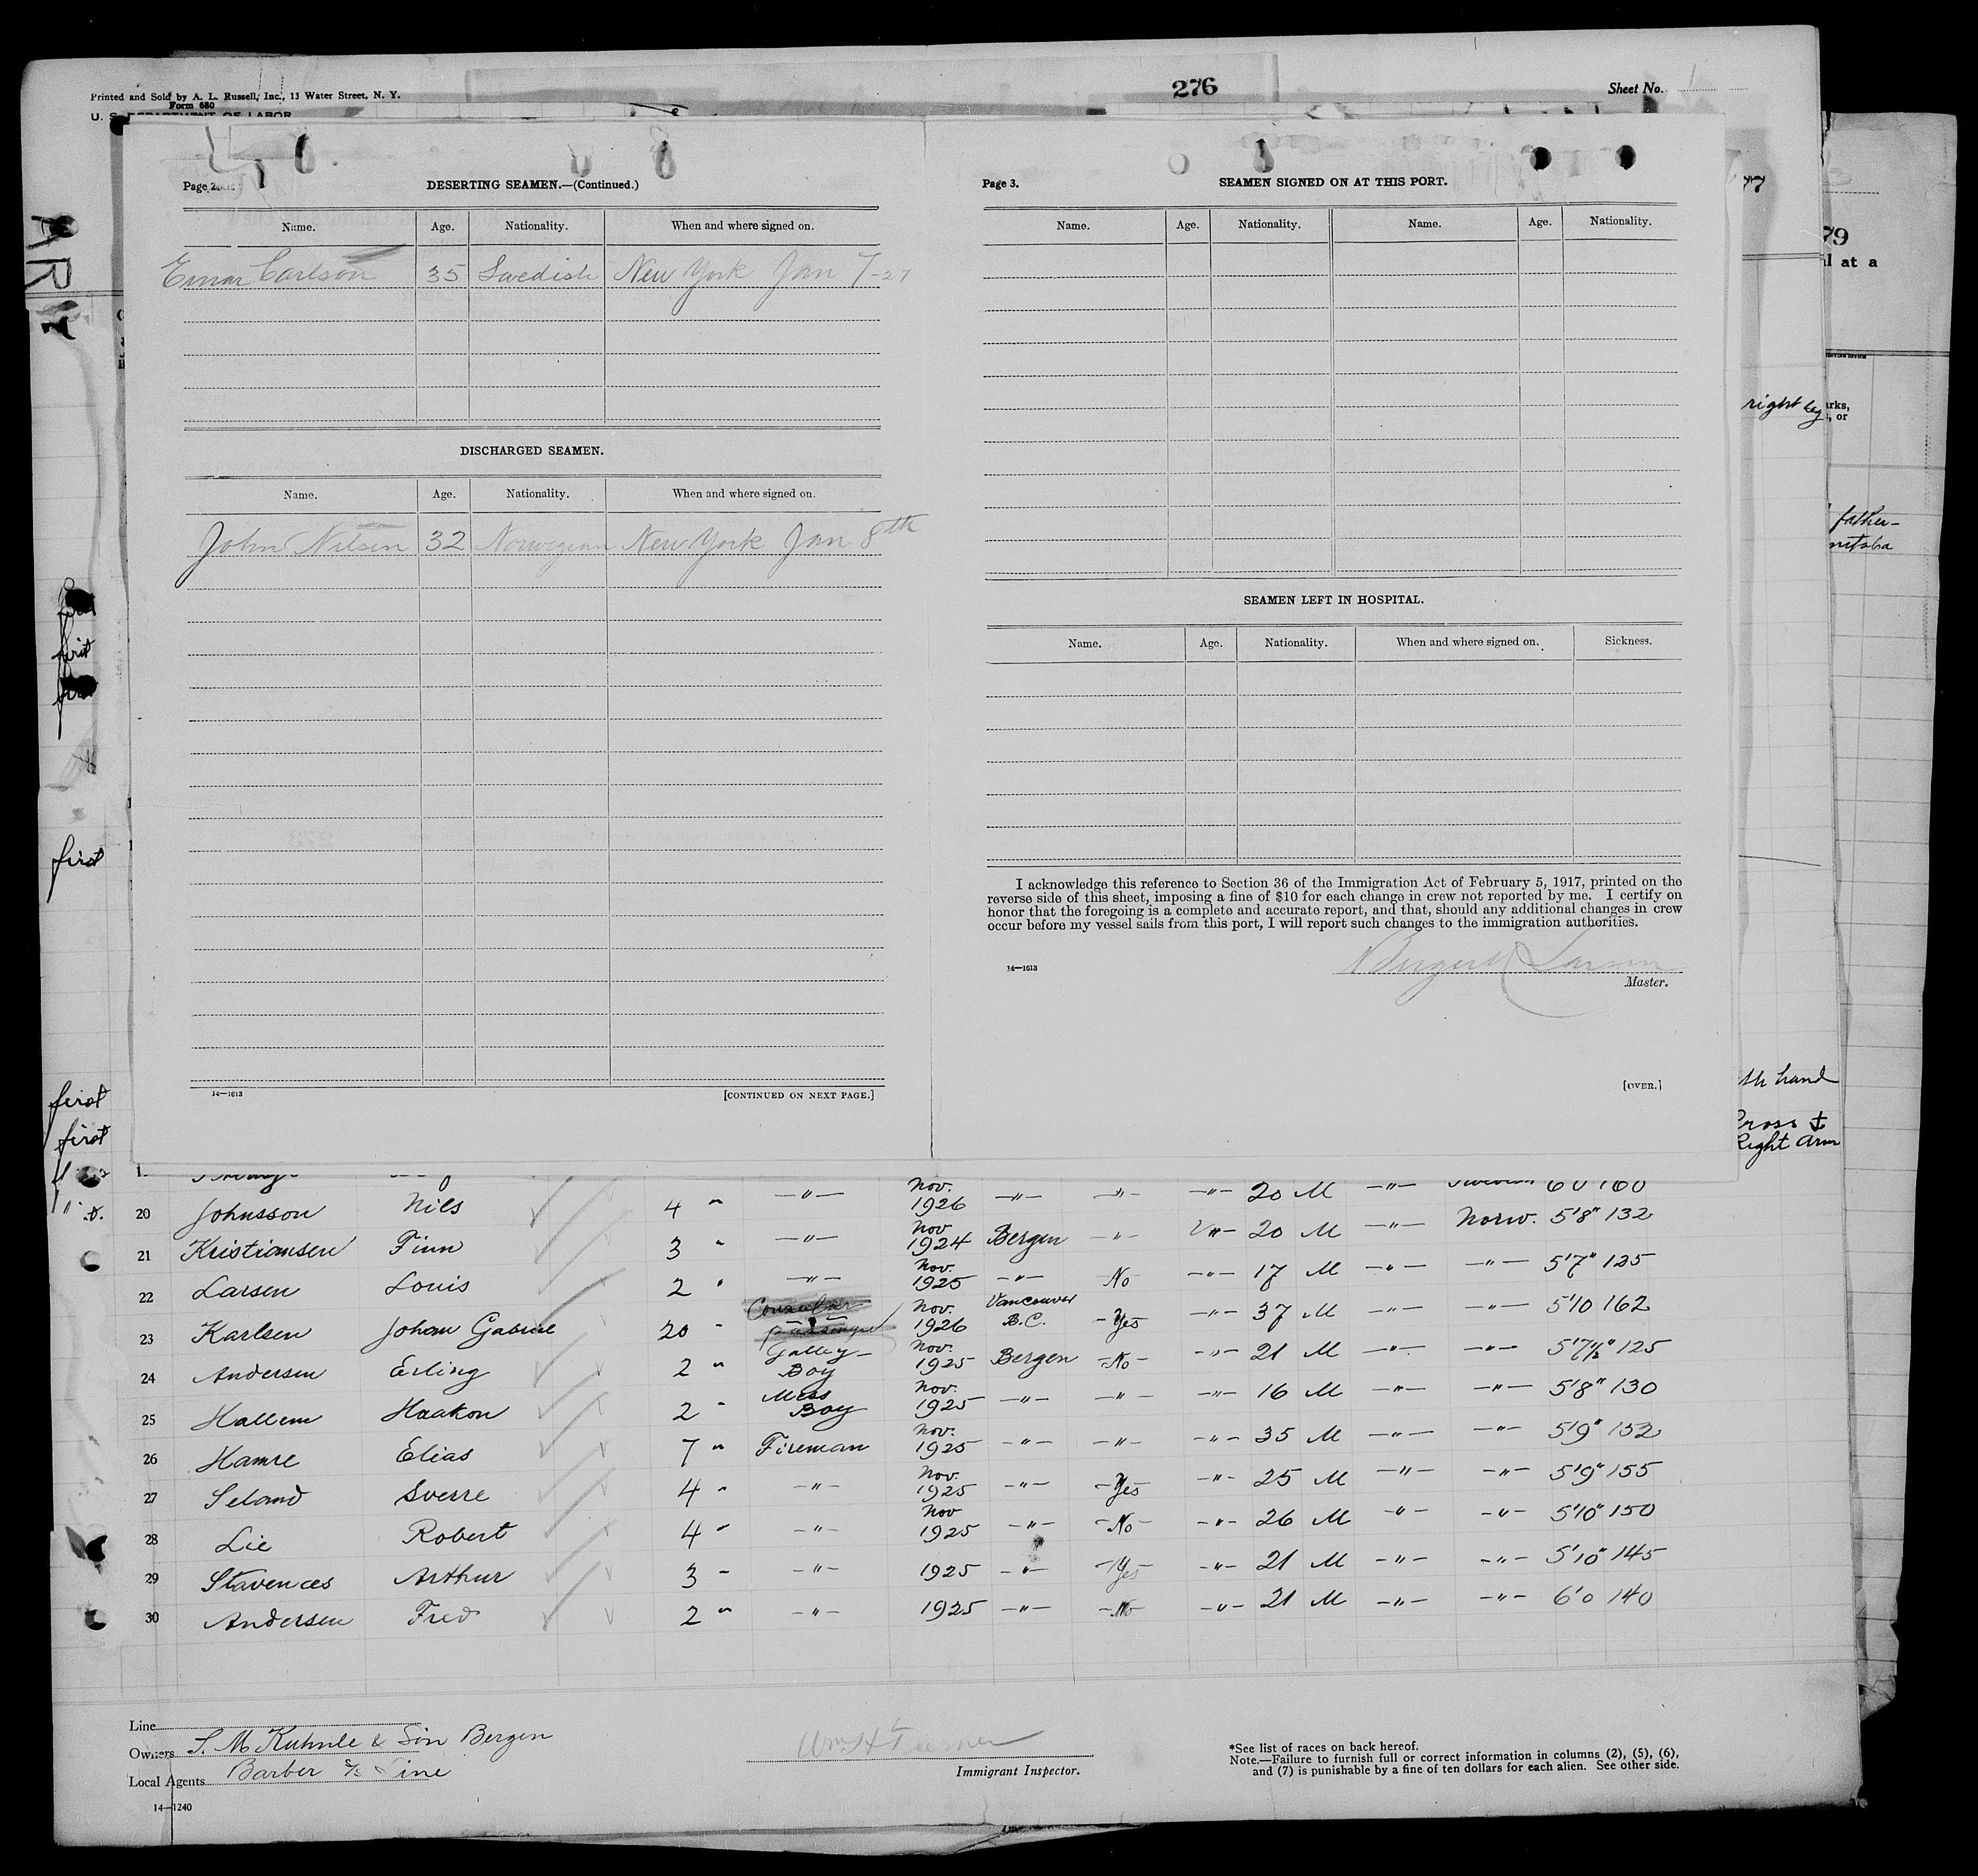 Printed and Sold by A. L. Russell, Inc., 13 Water Street, N. Y.
Form 680
U. S. DEPARTMENT OF LABOR
276
Sheet No.
Page 2.
DESERTING SEAMEN.—(Continued.)
Name. Age. Nationality. When and where signed on.
Einar Carlson 35 Swedish New York Jan 7-27
DISCHARGED SEAMEN.
Name. Age. Nationality. When and where signed on.
John Nilsen 32 Norwegian New York Jan 8th
14—1613
[CONTINUED ON NEXT PAGE.]
Page 3.
SEAMEN SIGNED ON AT THIS PORT.
Name. Age. Nationality. Name. Age. Nationality.
SEAMEN LEFT IN HOSPITAL.
Name. Age. Nationality. When and where signed on. Sickness.
I acknowledge this reference to Section 36 of the Immigration Act of February 5, 1917, printed on the
reverse side of this sheet, imposing a fine of $10 for each change in crew not reported by me. I certify on
honor that the foregoing is a complete and accurate report, and that, should any additional changes in crew
occur before my vessel sails from this port, I will report such changes to the immigration authorities.
Larsen
14—1613
Master.
[OVER.]
79
l at a
right leg
arks,
, or
father-
nitoba
hand
Cross
Right arm
first
first
first
first
first
first
20 Johnsson Nils 4 " —"— Nov. 1926 —"— —"— —"— 20 M —"— 60 160
21 Kristiansen Finn 3 " —"— Nov 1924 Bergen —"— —"— 20 M —"— Norw. 5'8" 132
22 Larsen Louis 2 " —"— Nov. 1925 —"— No —"— 17 M —"— —"— 5'7" 125
23 Karlsen Johan Gabriel 20 " Consular passenger Nov. 1926 Vancouver B.C. Yes —"— 37 M —"— —"— 5'10 162
24 Andersen Erling 2 " Galley Boy Nov. 1925 Bergen No —"— 21 M —"— —"— 5'7½" 125
25 Hallem Haakon 2 " Mess Boy Nov. 1925 —"— —"— —"— 16 M —"— —"— 5'8" 130
26 Hamre Elias 7 " Fireman Nov. 1925 —"— —"— —"— 35 M —"— —"— 5'9" 152
27 Seland Sverre 4 " —"— Nov. 1925 —"— Yes —"— 25 M —"— —"— 5'9" 155
28 Lie Robert 4 " —"— Nov 1925 —"— No —"— 26 M —"— —"— 5'10" 150
29 Stavences Arthur 3 " —"— 1925 —"— Yes —"— 21 M —"— —"— 5'10" 145
30 Andersen Fred 2 " —"— 1925 —"— No —"— 21 M —"— —"— 6'0 140
Line
Owners S. M. Kuhnle & Son Bergen
Local Agents Barber S/S Line
14—1240
Wm H Turner
Immigrant Inspector.
*See list of races on back hereof.
Note.—Failure to furnish full or correct information in columns (2), (5), (6),
and (7) is punishable by a fine of ten dollars for each alien. See other side.